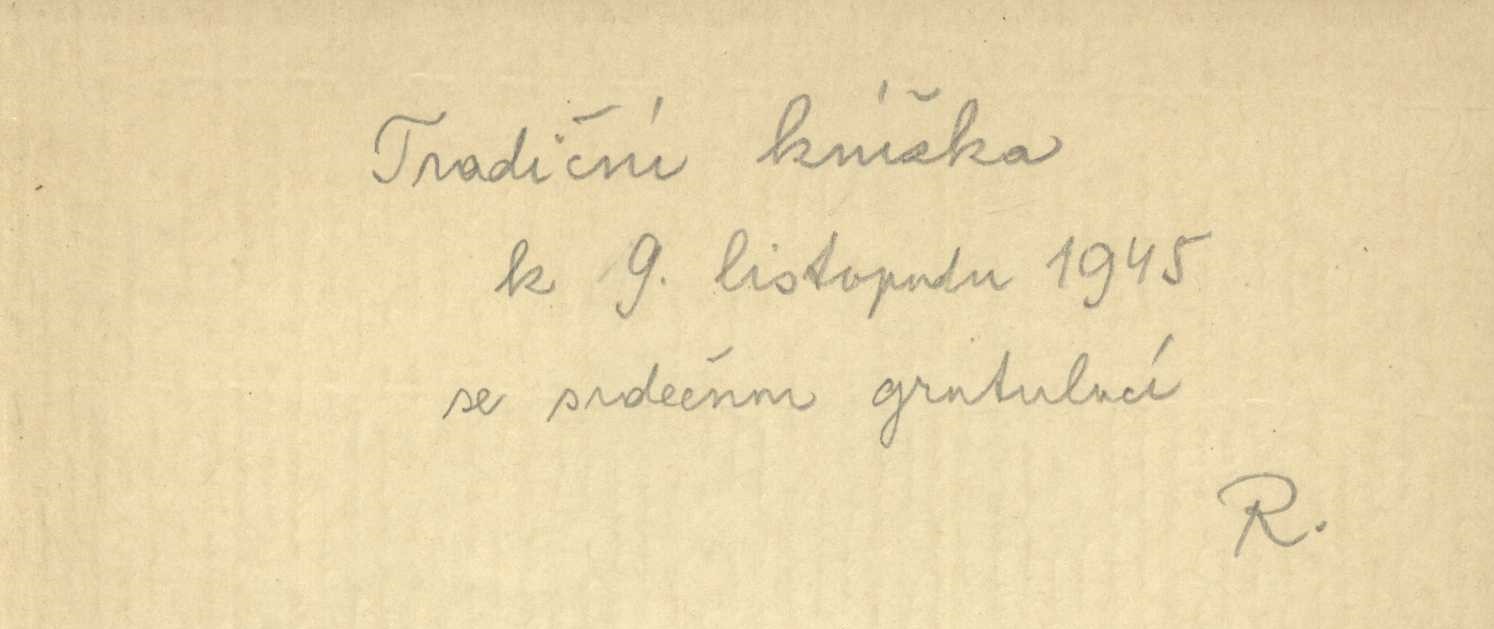 Tradiční knížka
k 9. listopadu 1945
se srdečnou gratulací
R.